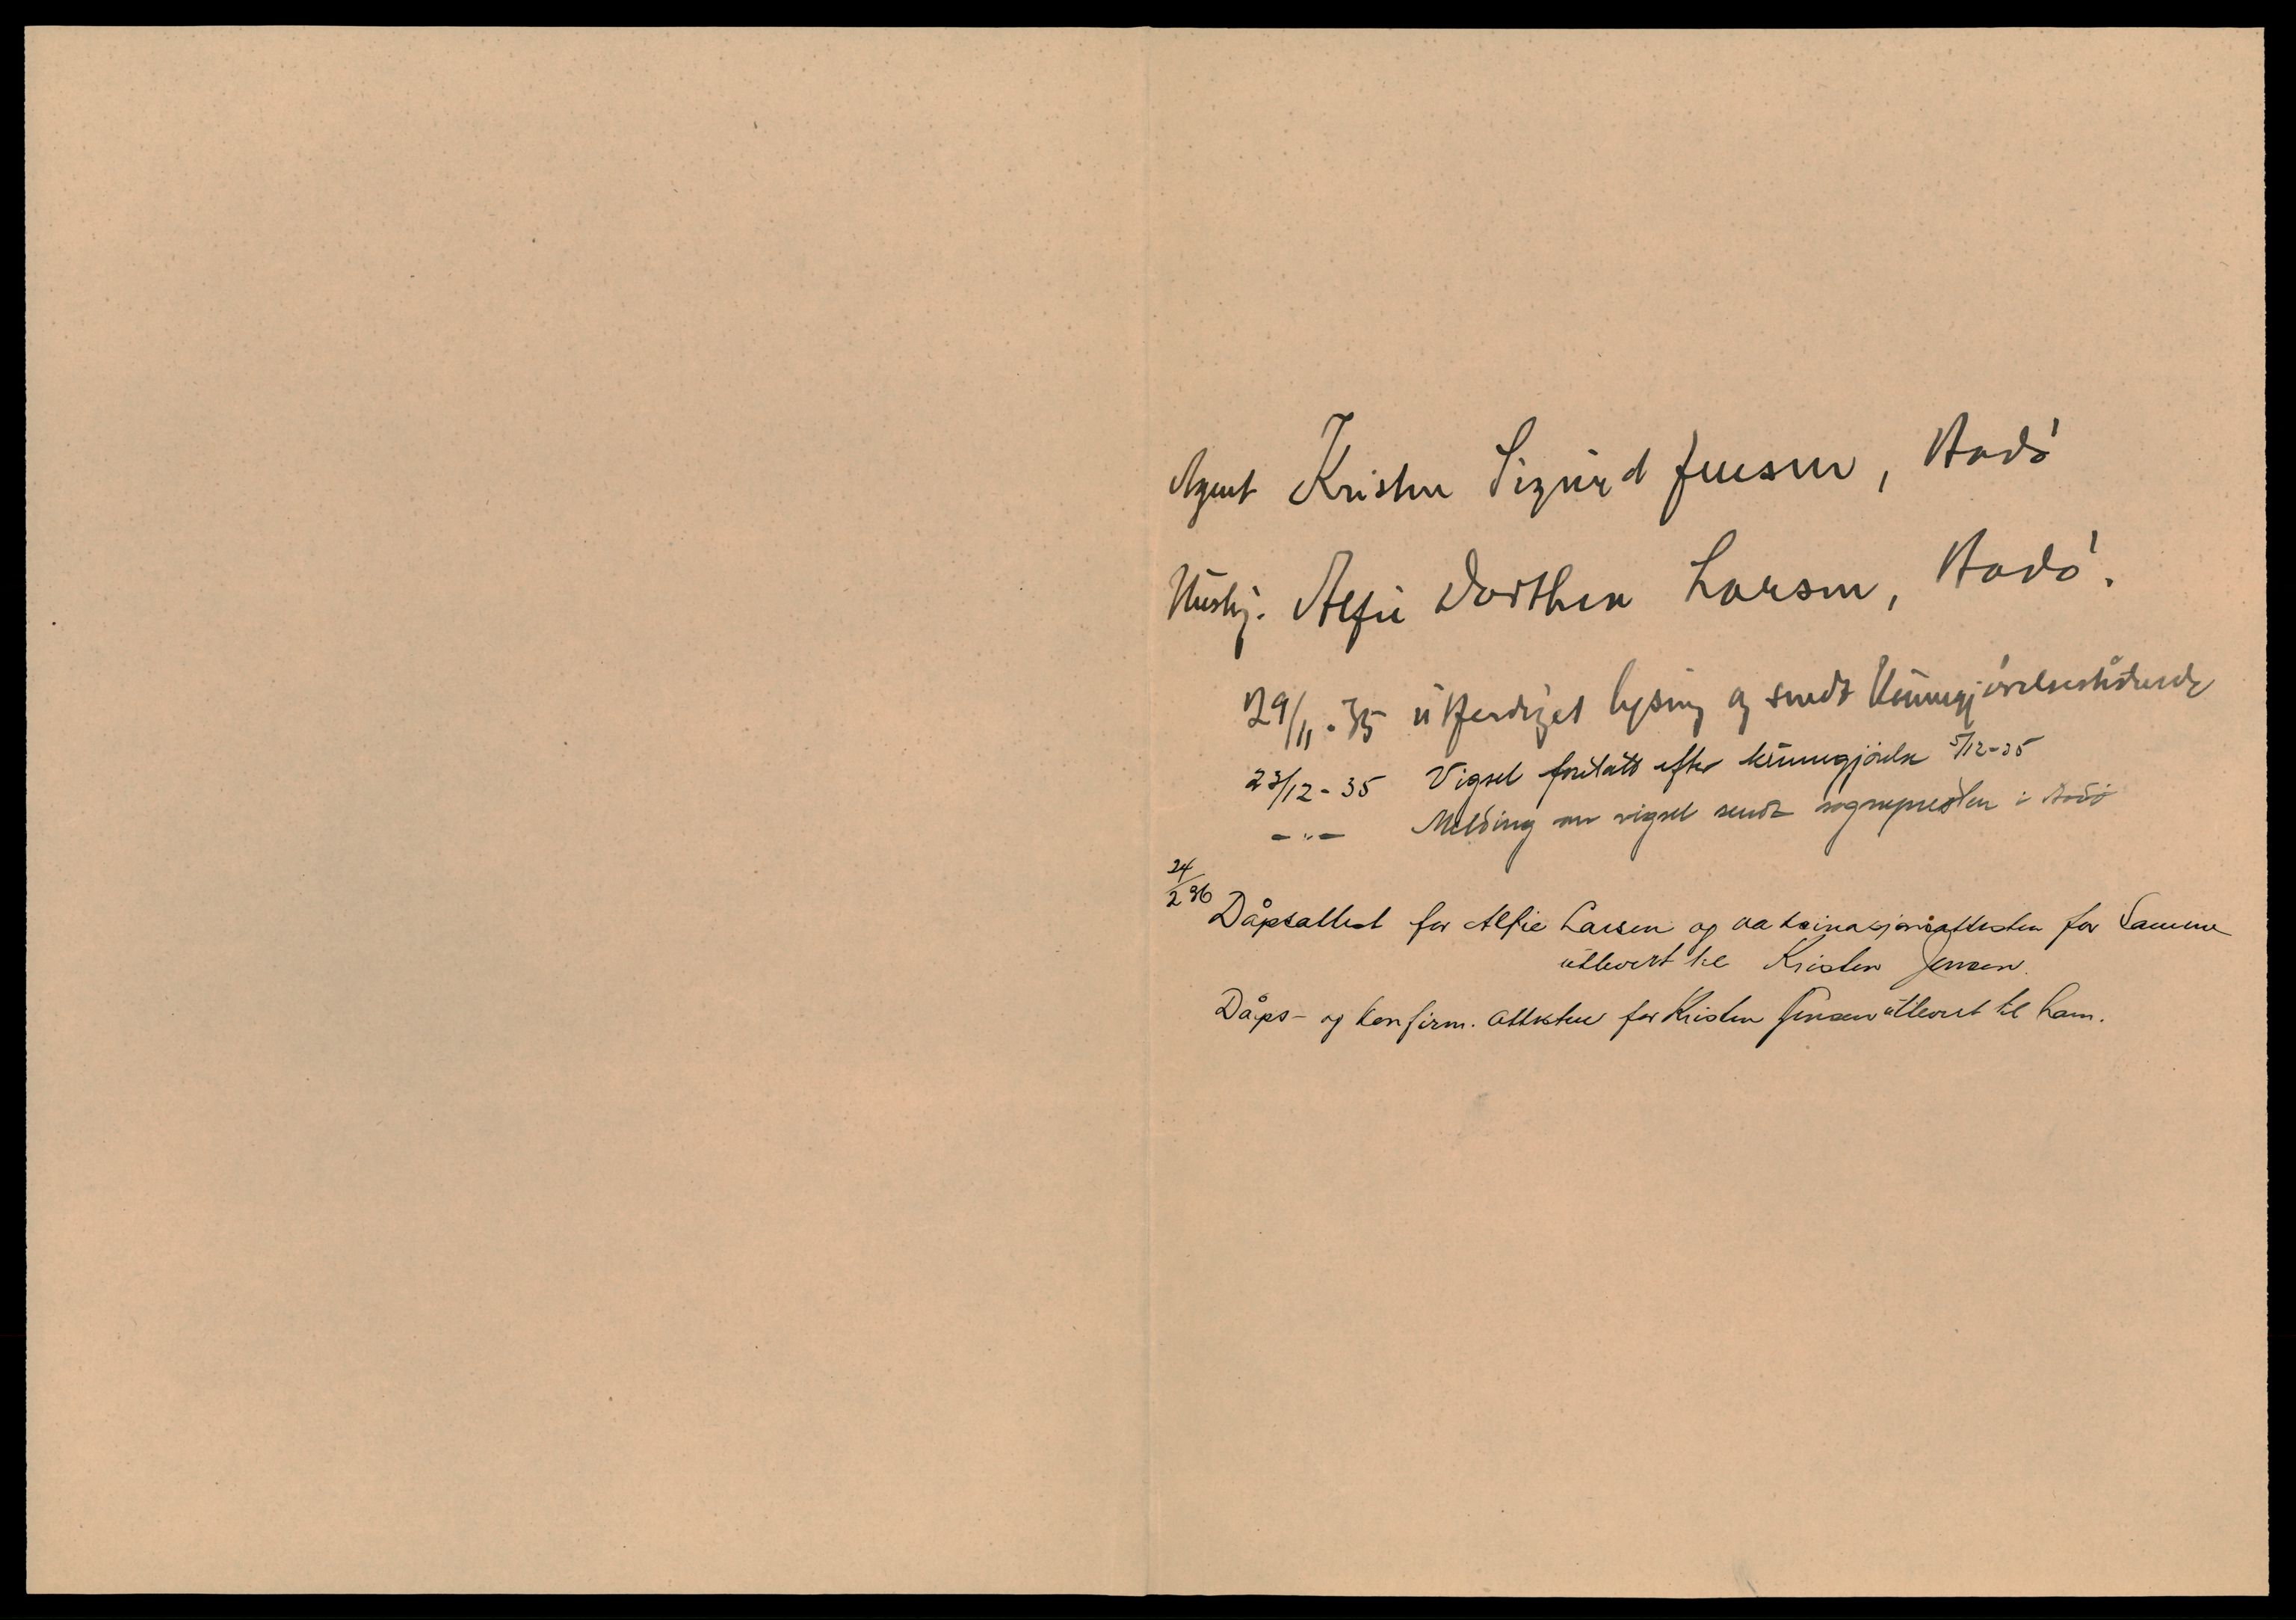 Agent Kristen Sigurd Jensen, Bodø
Hushj. Alfie Dorthea Larsen, Bodø.
29/11.35 utferdiget lysing og sendt Kunngjørelsestidende
23/12-35 Vigsel foretatt efter kunngjørelse 5/12-35
-"- Melding om vigsel sendt sognepresten i Bodø
24/2 36 Dåpsattest for Alfie Larsen og vaksinasjonsattesten for Samme
utlevert til Kristen Jensen.
Dåps- og konfirm. attesten for Kristen Jensen utlevert til ham.